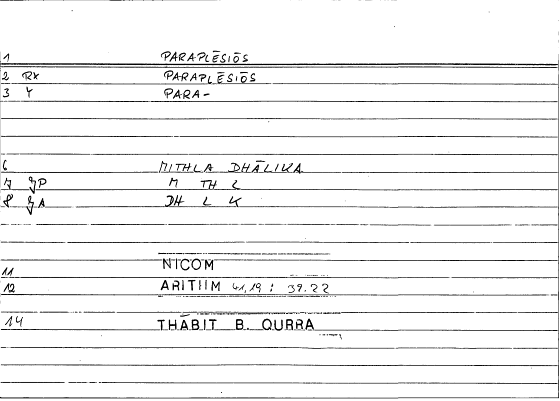 1 PARAPLĒSIŌS
2 RX PARAPLĒSIŌS
3 Y PARA-
6 MITHLA DHĀLIKA
7 JP M TH L
8 JA DH L K
11 NICOM
12 ARITHM 41,19 : 39.22
14 THĀBIT B. QURRA